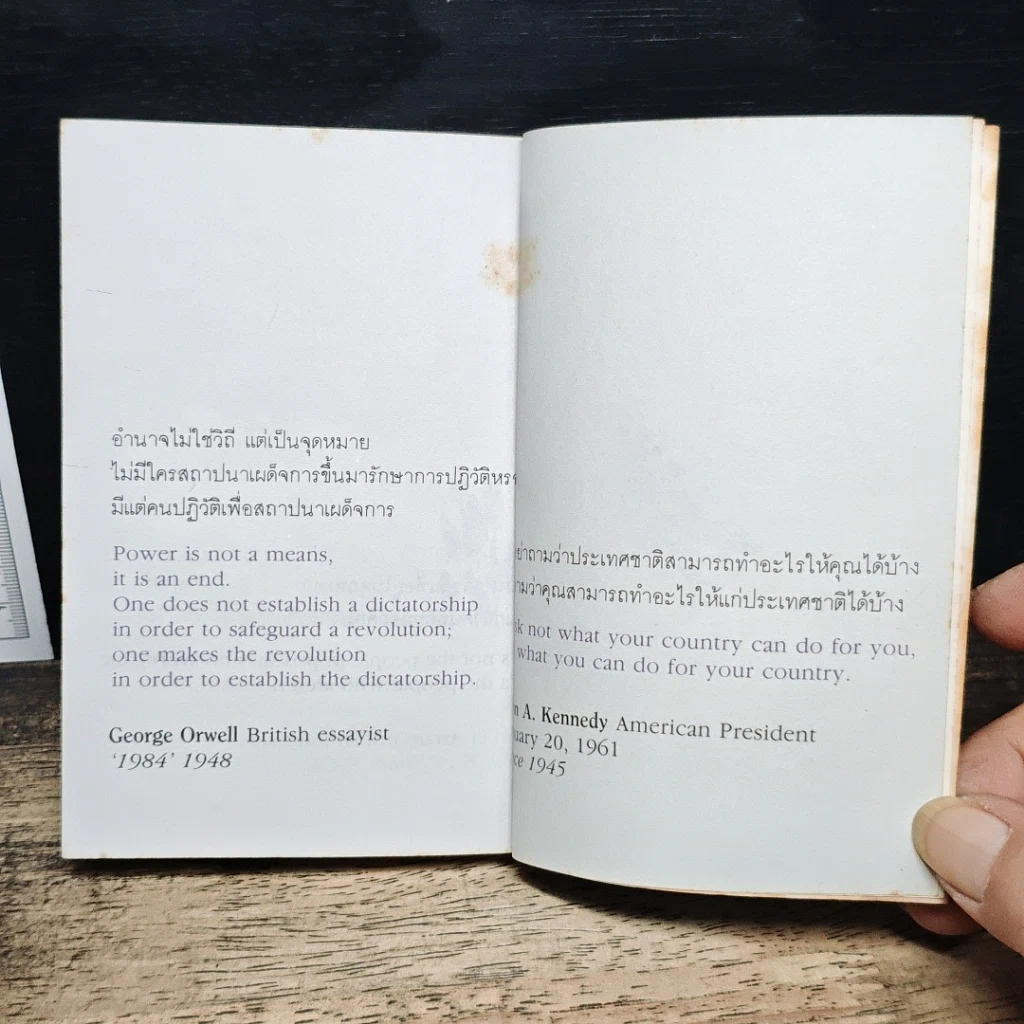 อำนาจไม่ใช่วิถี แต่เป็นจุดหมาย
ไม่มีใครสถาปนาเผด็จการขึ้นมารักษาการปฏิวัติ
มีแต่คนปฏิวัติเพื่อสถาปนาเผด็จการ
Power is not a means,
it is an end.
One does not establish a dictatorship
in order to safeguard a revolution;
one makes the revolution
in order to establish the dictatorship.
George Orwell British essayist
‘1984’ 1948
ย่าถามว่าประเทศชาติสามารถทำอะไรให้คุณได้บ้าง
ามว่าคุณสามารถทำอะไรให้แก่ประเทศชาติได้บ้าง
k not what your country can do for you,
what you can do for your country.
n A. Kennedy American President
uary 20, 1961
ce 1945